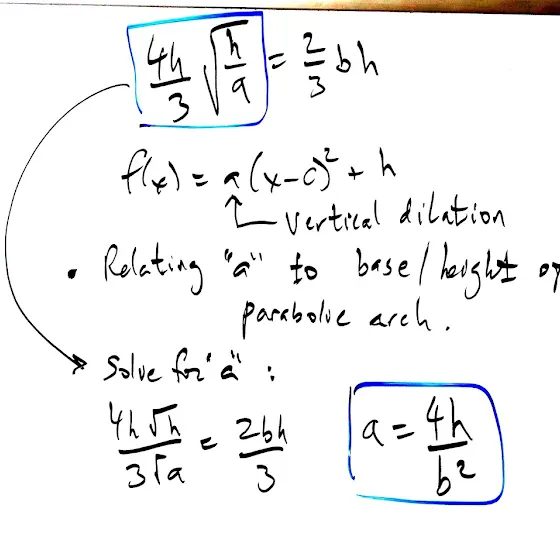 4h/3 √(h/a) = 2/3 bh
f(x) = a(x-c)² + h
vertical dilation
• Relating "a" to base/height of
parabolic arch.
Solve for "a" :
4h√h/3√a = 2bh/3
a = 4h/b²